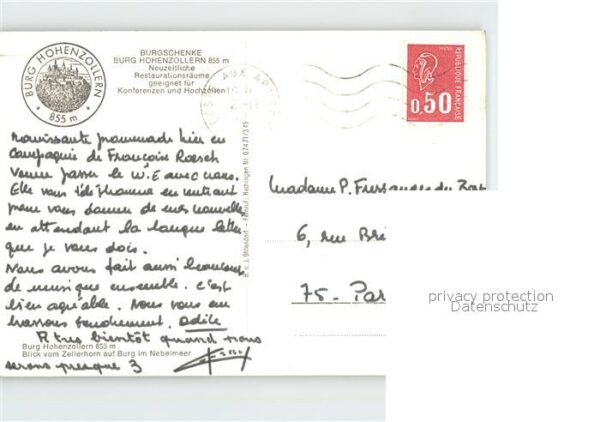 BURG HOHENZOLLERN
855 m
BURGSCHENKE
BURG HOHENZOLLERN 855 m
Neuzeitliche
Restaurationsräume
geeignet für
Konferenzen und Hochzeiten
AUX
0,50
REPUBLIQUE FRANCAISE
ravissante promenade hier en
compagnie de François Roesch
venue passer le W.E avec nous.
Elle vous téléphonera en rentrant
pour vous donner de nos nouvelles
en attendant la longue lettre
que je vous dois.
Nous avons fait aussi beaucoup
de musique ensemble. c'est
bien agréable. Nous vous em
brassons tendrement. Odile
A très bientôt quand nous
serons presque 3
Burg Hohenzollern 855 m
Blick vom Zellerhorn auf Burg im Nebelmeer
Madame P.
6, rue
75 - Par
privacy protection
Datenschutz